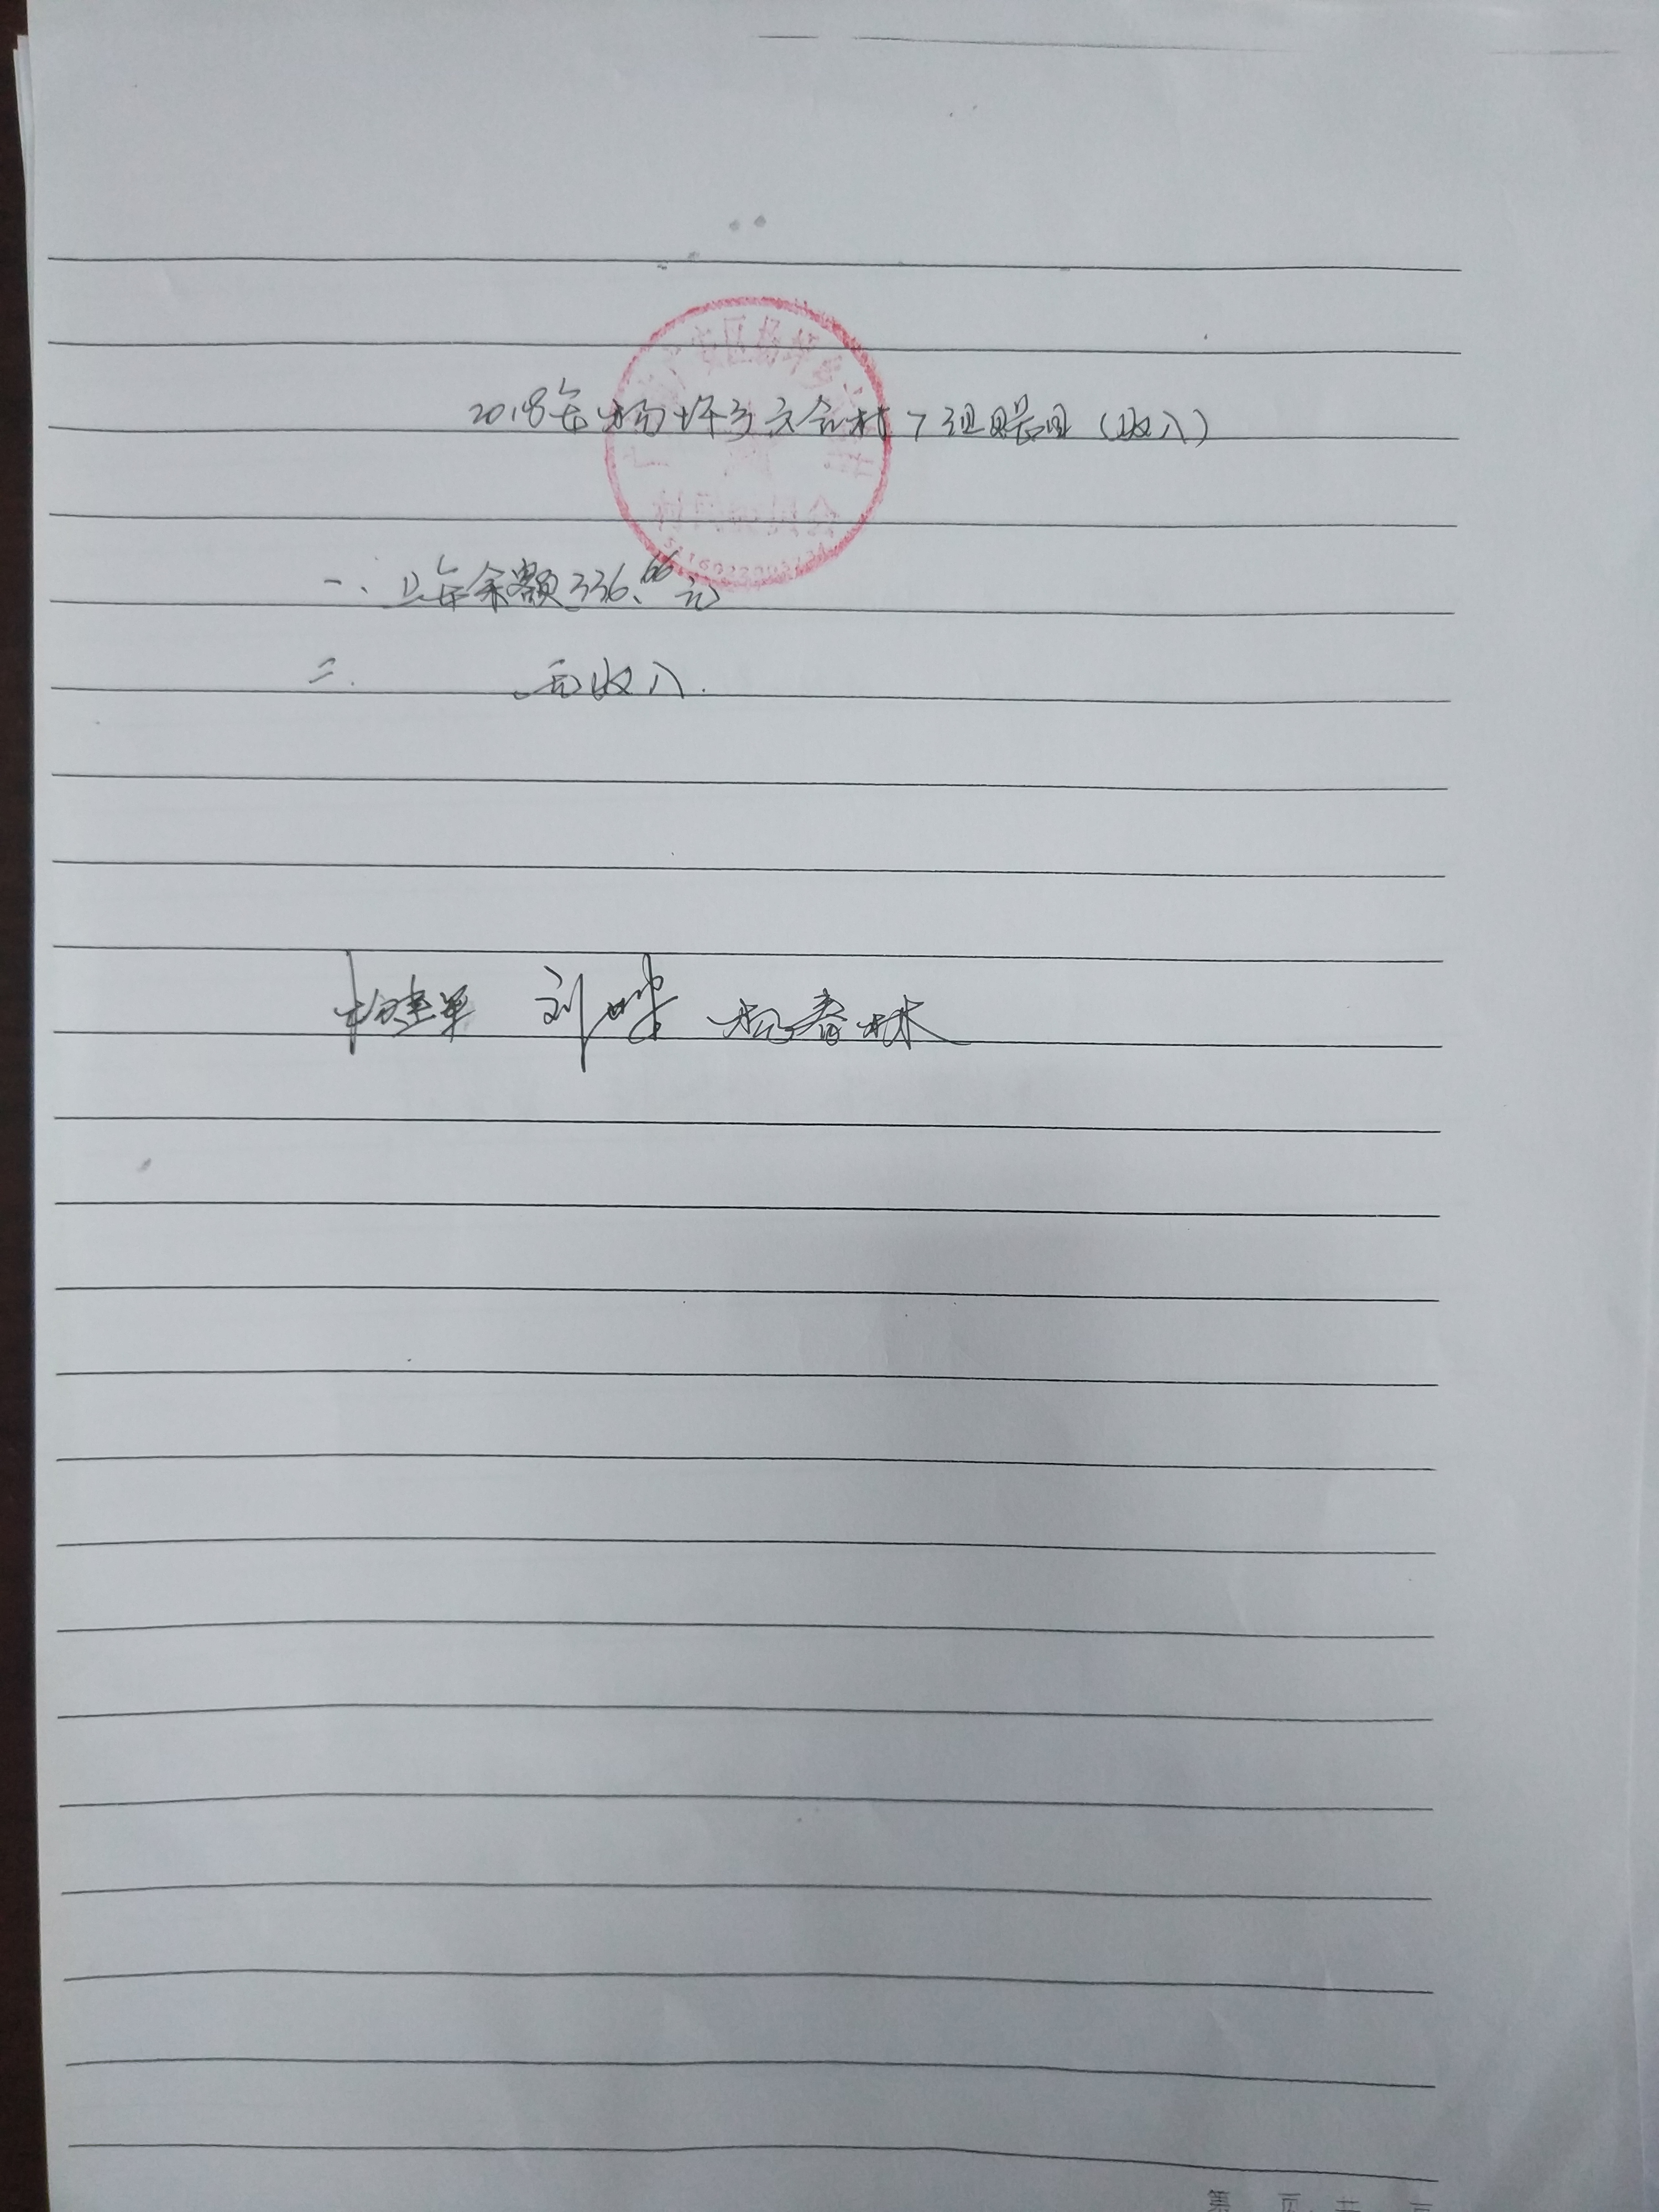 2018年杨坪乡六合村7组账目（收入）
一、上年余额336.66元
二. 无收入.
杨建军 刘 杨春林
第 页 共 页